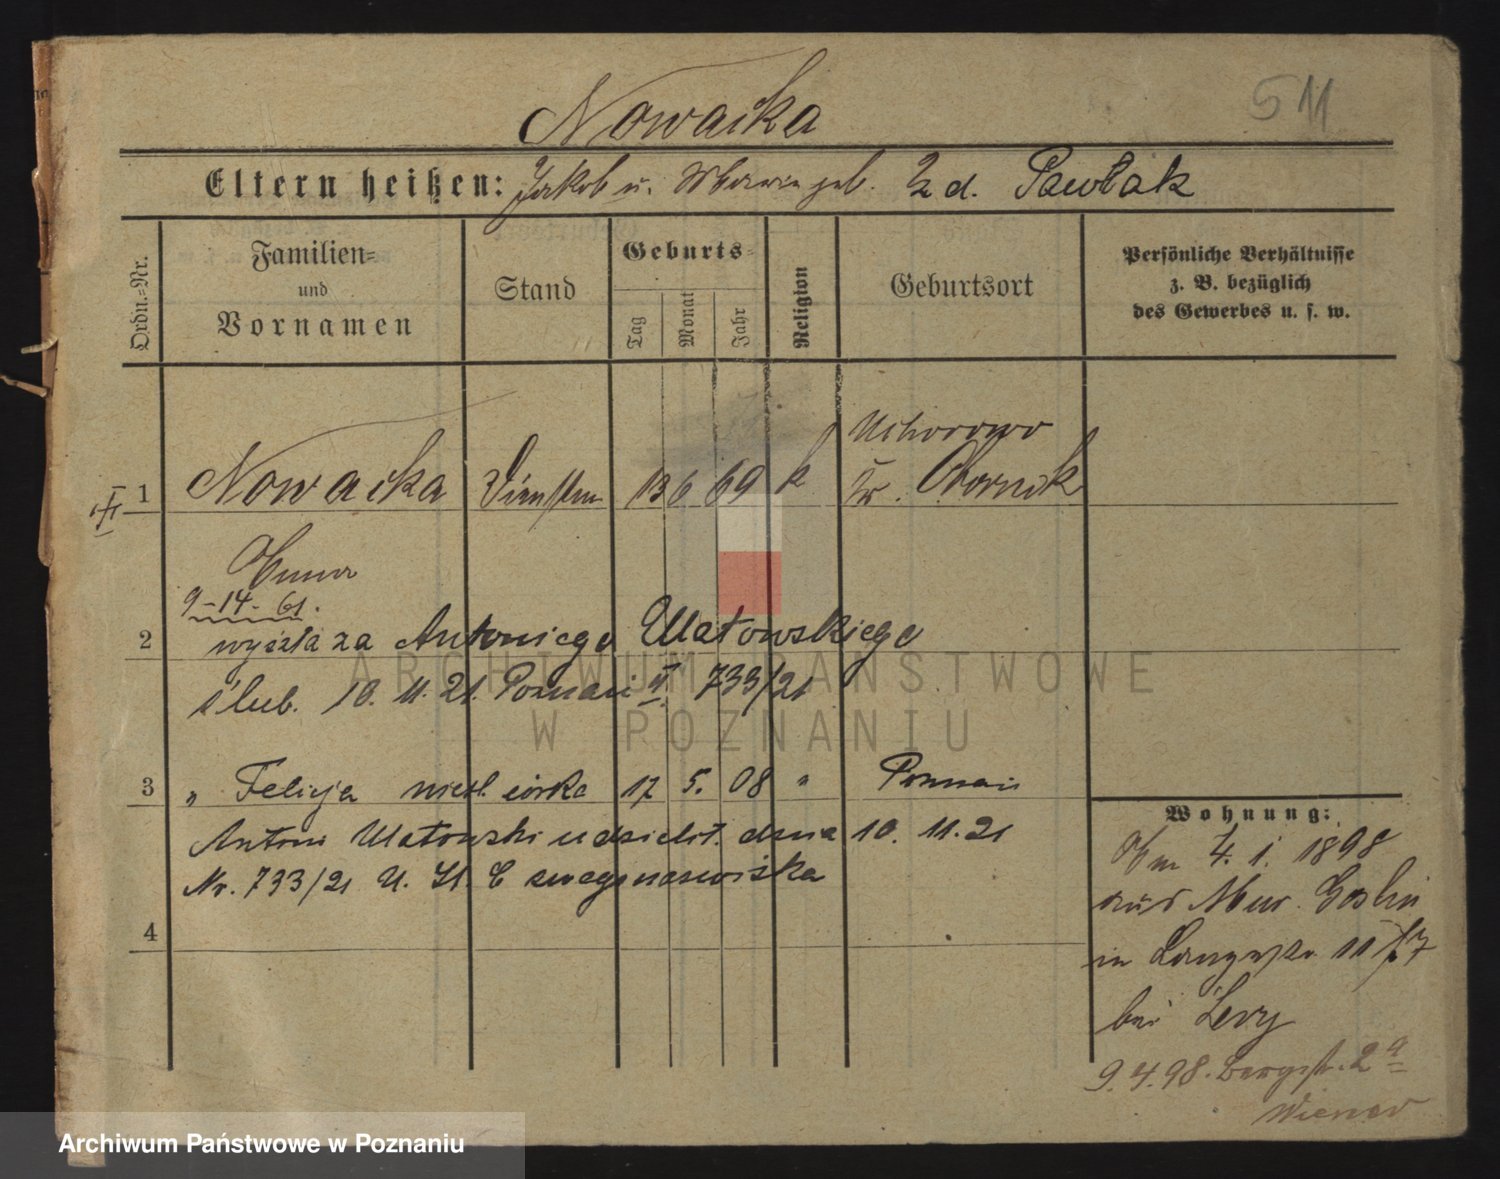 Nowacka
511
Eltern heißen: Jakob u. geb. Pawlak
Ordn.-Nr.
Familien-
und
Vornamen
Stand
Geburts-
Tag
Monat
Jahr
Religion
Geburtsort
Persönliche Verhältnisse
z. B. bezüglich
des Gewerbes u. s. w.
Uchorowo
1 Nowacka 13 6 69 k Kr. Obornik
9-14-61.
2 wyszła za Antoniego Ulatowskiego
ślub. 10. 11. 21. Poznań II. 733/21
3 " Felicja nieśl. córka 17 5. 08 " Poznań
Antoni Ulatowski udzielił dnia 10. 11. 21
Nr. 733/21 U. St. swego nazwiska
4
Wohnung:
Am 4. 1. 1898
aus Mur. Goslin
in Langestr. 11
bei Levy
9. 4. 98. Bergstr. 2a
ARCHIWUM PAŃSTWOWE
W POZNANIU
Archiwum Państwowe w Poznaniu